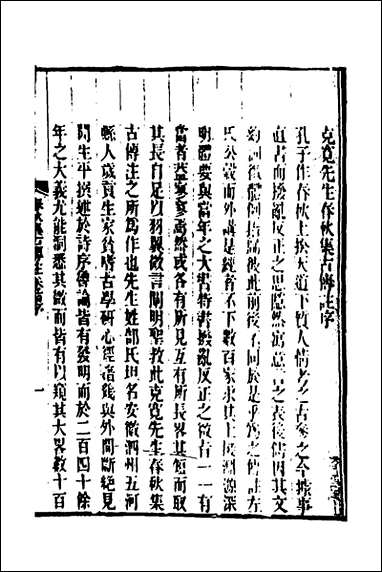 克寛先生春秋集古傳註序
孔子作春秋上揆天道下質人情參之于古考之于今據事
直書而撥亂反正之思隱然寓意言之表後儒因其文
約詞微體例括凾彼此前後不同於是乎為之傳註左
氏公穀而外講是經者不下數百家求其上探淵源深
明體要與當年之大書特書撥亂反正之微旨一一有
當者蓋寥寥焉然或各有所見互有所長畧其短而取
其長自足以羽翼微言闡明聖教此克寛先生春秋集
古傳注之所為作也先生姓郜氏坦名安徽泗州五河
縣人歲貢生家貧嗜古學研心經者幾與外間斷絶見
聞生平撰述於詩序傳論皆有發明而於二百四十餘
年之大義尤能洞悉其微而皆有以窺其大畧数十百
春秋集古傳註 序
一